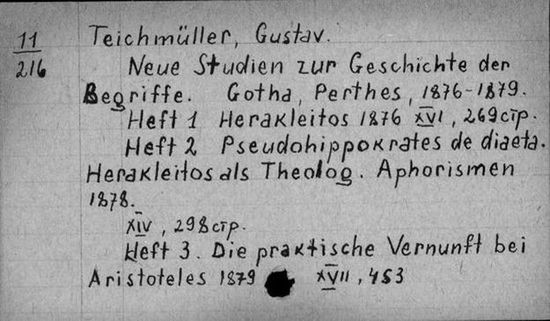 11
216
Teichmüller, Gustav.
Neue Studien zur Geschichte der
Begriffe. Gotha, Perthes, 1876-1879.
Heft 1 Herakleitos 1876 XVI, 269стр.
Heft 2 Pseudohippokrates de diaeta.
Herakleitos als Theolog. Aphorismen
1878.
XIV, 298стр.
Heft 3. Die praktische Vernunft bei
Aristoteles 1879 XVII, 453